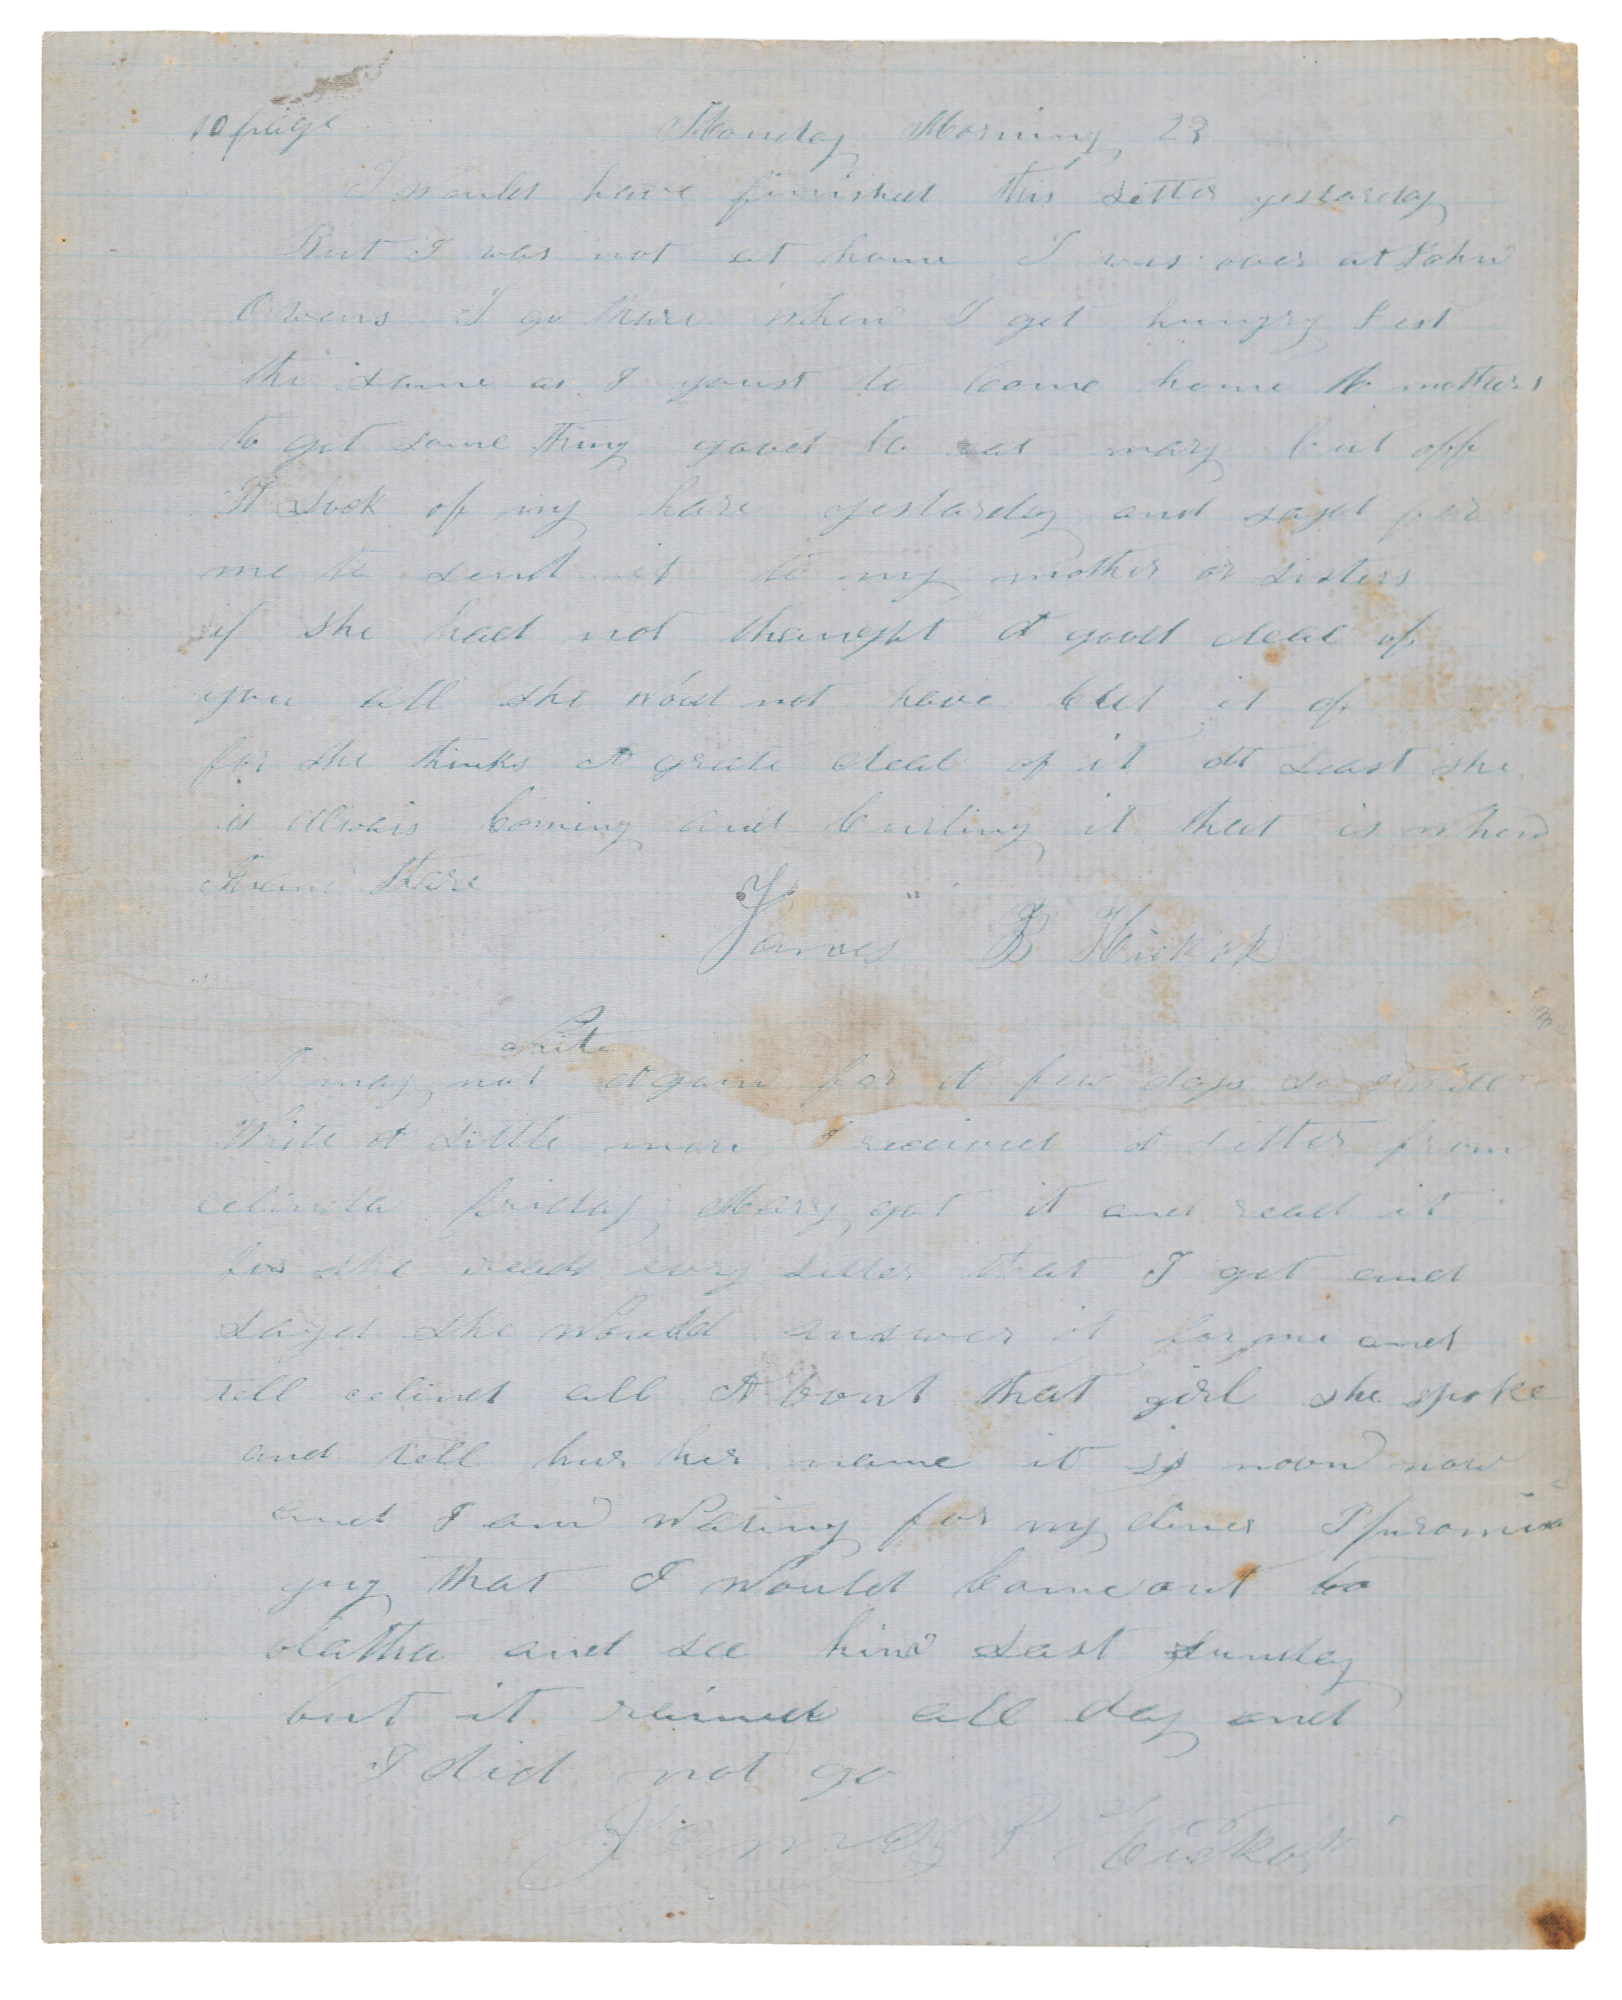 10 paige Monday Morning 23
I Would have finished this Letter yestarday
But I was not at home I was over at John
Owens I go thare when I get hungry Jest
the same as I youst to Come home to mothers
to get some thing good to eat mary Cut off
A Lock of my hare yestarday and sayd for
me to send it to my mother or sisters
if she had not thaught A good deal of
you all she woud not have Cut it of
for she thinks A grate deal of it At Least she
is alwais Coming and Curling it that is when
Aram hare
James B Hickok
write
I may not Again for A few days so I will
Write A Little more I received A Letter from
celinda friday Mary got it and read it
for she reads evry Letter that I get and
sayd she Would answer it for me and
tell celind all A bout that girl she spoke
and tell hur her name it is noon now
and I am Wating for my diner I promised
guy that I Would Come out to
olatha and see him Last Sunday
but it rained all day and
I did not go
James B Hickok